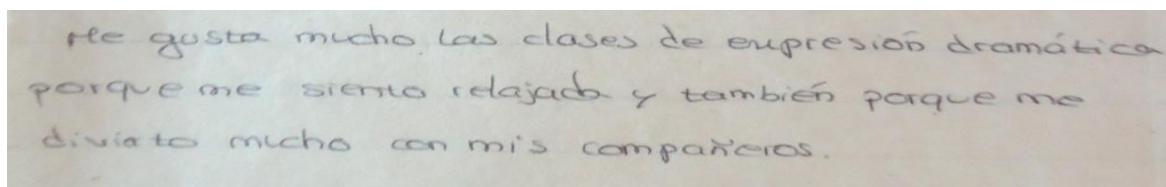 Me gusta mucho las clases de expresión dramática
porque me siento relajado y también porque me
diviato mucho con mis compañeros.